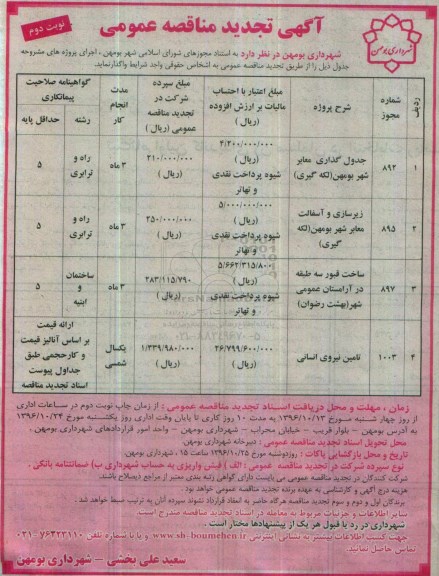 آگهی تجدید مناقصه عمومی
نوبت دوم
شهرداری بومهن
شهرداری بومهن در نظر دارد به استناد مجوزهای شورای اسلامی شهر بومهن ، اجرای پروژه های مشروحه
جدول ذیل را از طریق تجدید مناقصه عمومی به اشخاص حقوقی واجد شرایط واگذار نماید.
ردیف
شماره مجوز
شرح پروژه
مبلغ اعتبار با احتساب مالیات بر ارزش افزوده (ریال)
مبلغ سپرده شرکت در تجدید مناقصه عمومی (ریال)
مدت انجام کار
گواهینامه صلاحیت پیمانکاری
رشته
حداقل پایه
۱
۸۹۴
جدول گذاری معابر شهر بومهن(لکه گیری)
۴/۲۰۰/۰۰۰/۰۰۰ (ریال) شیوه پرداخت نقدی و تهاتر
۲۱۰/۰۰۰/۰۰۰ (ریال)
۳ ماه
راه و ترابری
۵
۲
۸۹۵
زیرسازی و آسفالت معابر شهر بومهن(لکه گیری)
۵/۰۰۰/۰۰۰/۰۰۰ (ریال) شیوه پرداخت نقدی و تهاتر
۲۵۰/۰۰۰/۰۰۰ (ریال)
۳ ماه
راه و ترابری
۵
۳
۸۹۷
ساخت قبور سه طبقه در آرامستان عمومی شهر(بهشت رضوان)
۵/۶۶۲/۳۱۵/۸۰۰ (ریال) شیوه پرداخت نقدی و تهاتر
۲۸۳/۱۱۵/۷۹۰ (ریال)
۳ ماه
ساختمان و ابنیه
۵
۴
۱۰۰۳
تامین نیروی انسانی
۲۶/۷۹۹/۶۰۰/۰۰۰ (ریال)
۱/۳۳۹/۹۸۰/۰۰۰ (ریال)
یکسال شمسی
ارائه قیمت بر اساس آنالیز قیمت و کارحجمی طبق جداول پیوست اسناد تجدید مناقصه
زمان ، مهلت و محل دریافت اسناد تجدید مناقصه عمومی : از زمان چاپ نوبت دوم در ساعات اداری
از روز چهار شنبه مورخ ۱۳۹۶/۱۰/۱۳ به مدت ۱۰ روز کاری تا پایان وقت اداری روز یکشنبه مورخ ۱۳۹۶/۱۰/۲۴
به آدرس بومهن – بلوار قریب – خیابان محراب – شهرداری بومهن – واحد امور قراردادهای شهرداری بومهن .
محل تحویل اسناد تجدید مناقصه عمومی : دبیرخانه شهرداری بومهن
تاریخ و محل بازگشایی پاکات : روز دوشنبه مورخ ۱۳۹۶/۱۰/۲۵ ساعت ۱۵ ، شهرداری بومهن.
نوع سپرده شرکت در تجدید مناقصه عمومی : الف ) فیش واریزی به حساب شهرداری ب) ضمانتنامه بانکی .
شرکت کنندگان در تجدید مناقصه عمومی می بایست دارای گواهی رتبه بندی معتبر از مراجع ذیصلاح باشند.
هزینه درج آگهی و کارشناسی به عهده برنده تجدید مناقصه عمومی خواهد بود.
برندگان اول و دوم و سوم تجدید مناقصه هرگاه حاضر به انعقاد قرارداد نشوند سپرده آنان به ترتیب ضبط خواهد شد .
سایر اطلاعات و جزئیات مربوط به معامله در اسناد تجدید مناقصه مندرج است.
شهرداری در رد یا قبول هر یک از پیشنهادها مختار است .
جهت کسب اطلاعات بیشتر به نشانی اینترنتی www.sh-boumehen.ir و یا با شماره تلفن ۷۶۲۲۳۱۱۰-۰۲۱
تماس حاصل نمایید.
سعید علی بخشی – شهرداری بومهن